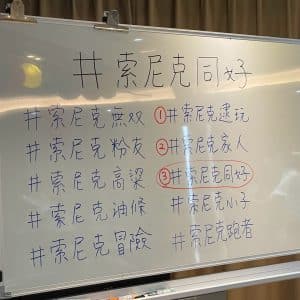 #索尼克同好
#索尼克無双
#索尼克粉友
#索尼克高粱
#索尼克油條
#索尼克冒險
①#索尼克玩
②#索尼克家人
③#索尼克同好
#索尼克小子
#索尼克跑者